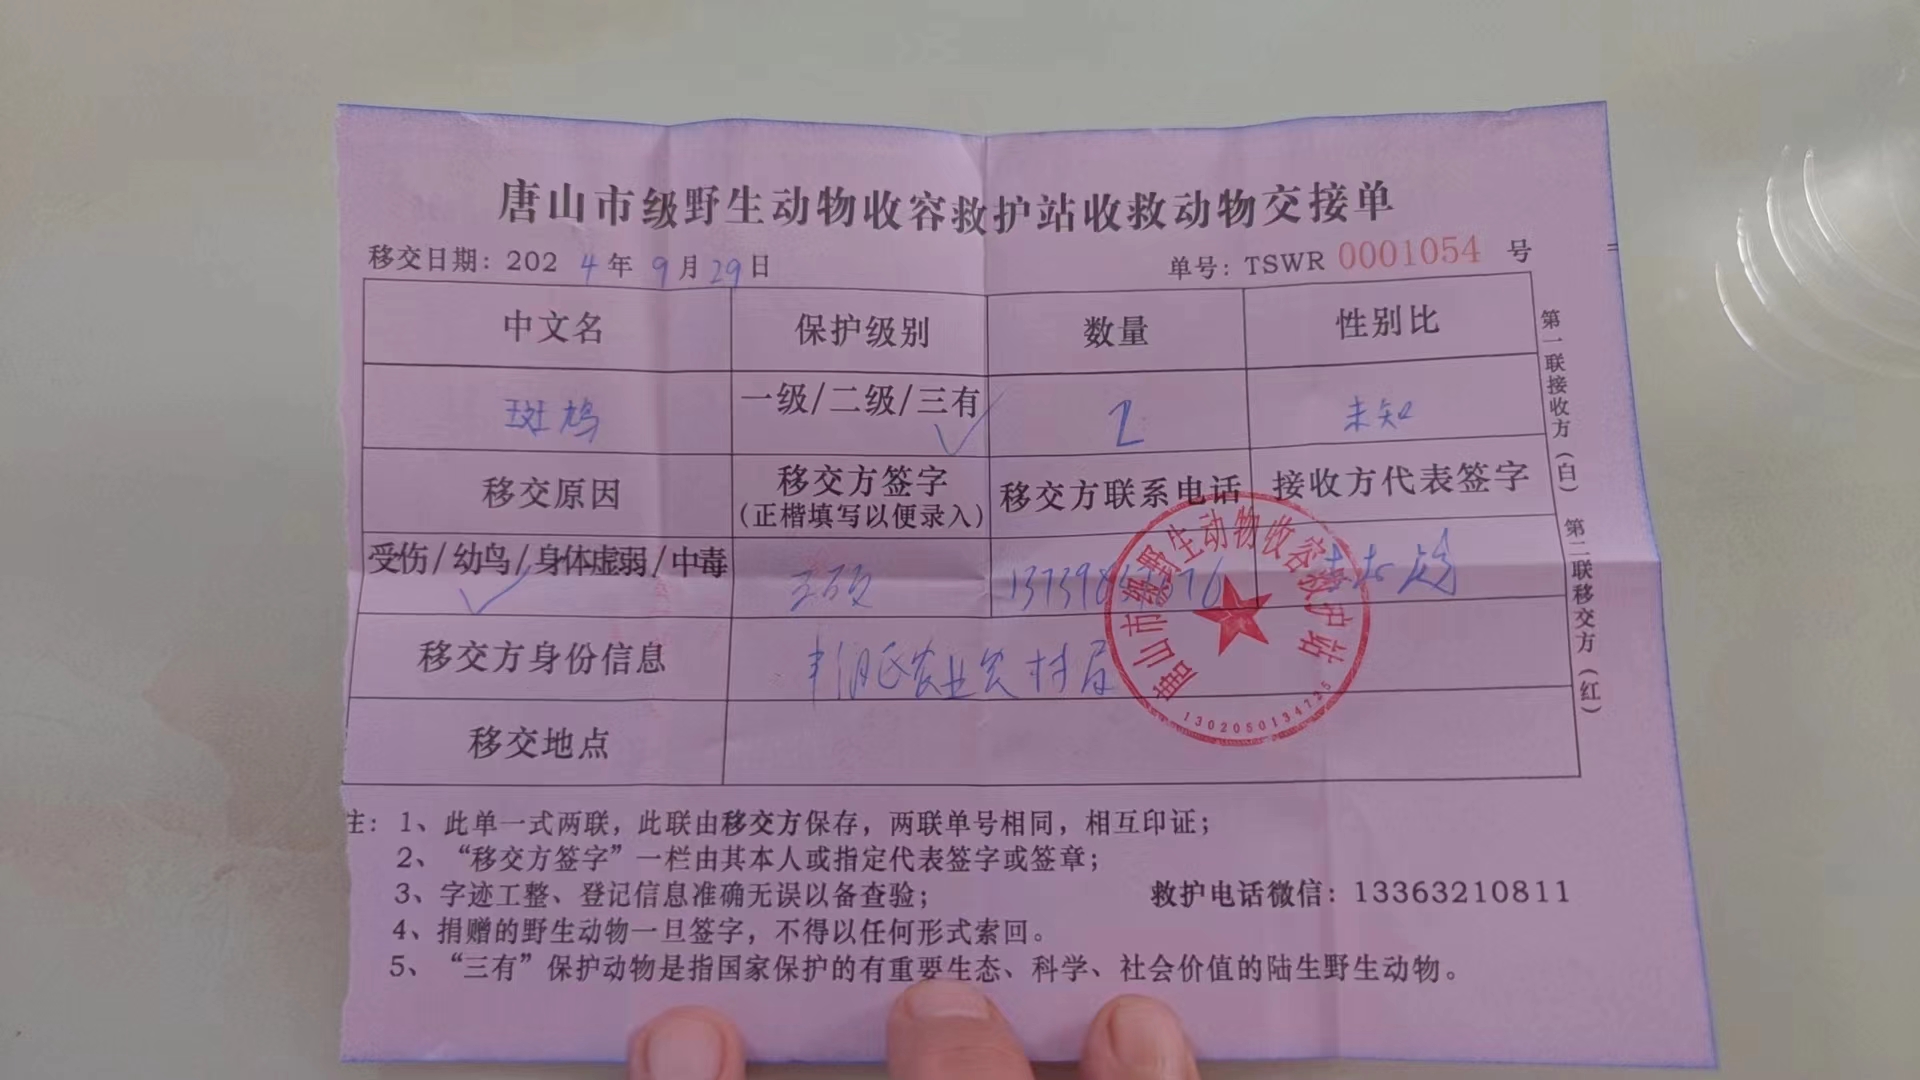 唐山市级野生动物收容救护站收救动物交接单
移交日期：2024年9月29日
单号：TSWR 0001054 号
中文名 保护级别 数量 性别比
斑鸠 一级/二级/三有✓ 2 未知
移交原因 移交方签字 移交方联系电话 接收方代表签字
（正楷填写以便录入）
受伤/幼鸟/身体虚弱/中毒
✓
移交方身份信息 丰润区农业农村局
移交地点
唐山市级野生动物收容救护站
1302050134725
第一联接收方（白） 第二联移交方（红）
注：1、此单一式两联，此联由移交方保存，两联单号相同，相互印证；
2、“移交方签字”一栏由其本人或指定代表签字或签章；
3、字迹工整、登记信息准确无误以备查验；
救护电话微信：13363210811
4、捐赠的野生动物一旦签字，不得以任何形式索回。
5、“三有”保护动物是指国家保护的有重要生态、科学、社会价值的陆生野生动物。